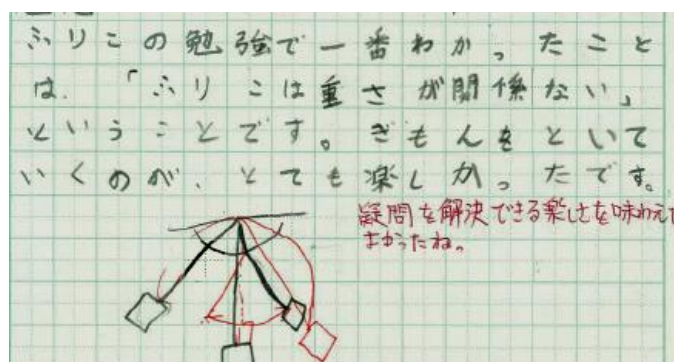 ふりこの勉強で一番わかったこと
は、「ふりこは重さが関係ない」
ということです。ぎもんをといて
いくのが、とても楽しかったです。
疑問を解決できる楽しさを味わえて
よかったね。